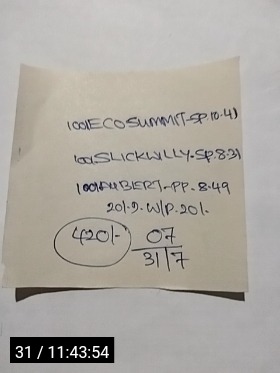 100/ECOSUMMIT-SP.10.41
100/SLICKWILLY-SP.8.31
100/AUBERT-PP-8.49
20/-D.W/P.20/-
420/-
07
31/7
31 / 11:43:54